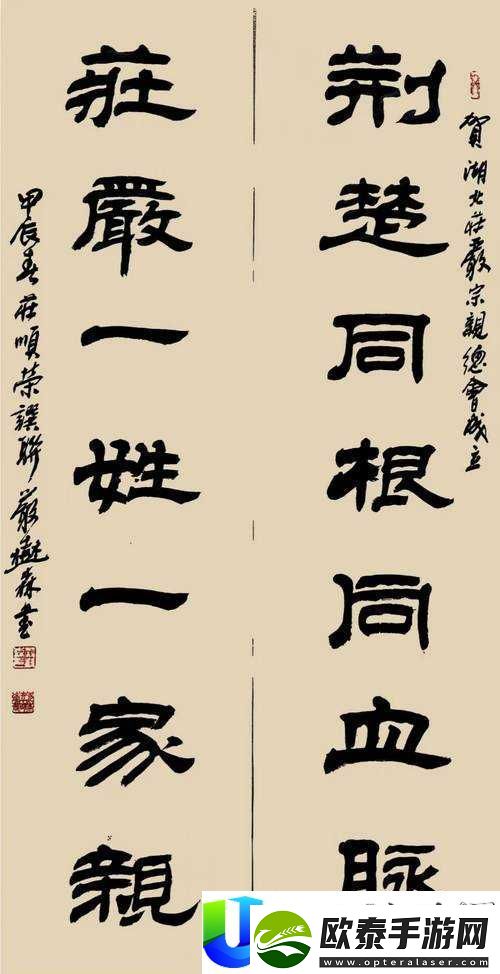 賀湖北莊嚴宗親總會成立
荆楚同根同血脈
莊嚴一姓一家親
甲辰春莊順榮譔聯嚴樾森書
欧泰手游网
www.opteralaser.com